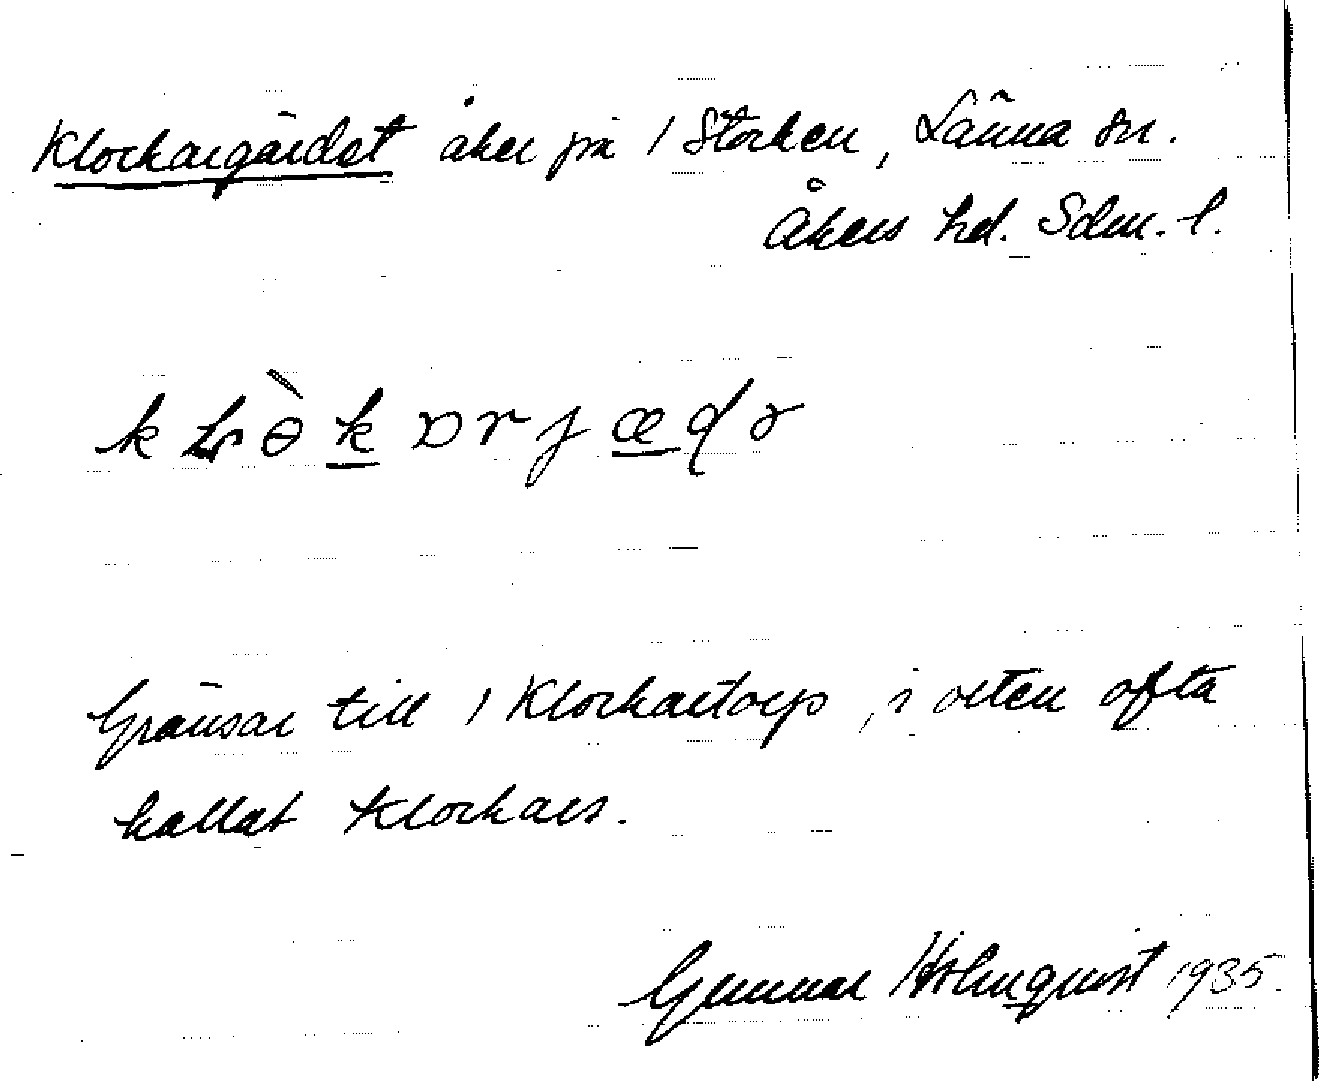 Klockargärdet åker på / Storken, Länna sn.
Åkers hd. Sdm. l.
Gränsar till / Klockartorp, i orten ofta
kallat Klockars.
Gunnar Holmquist 1935.